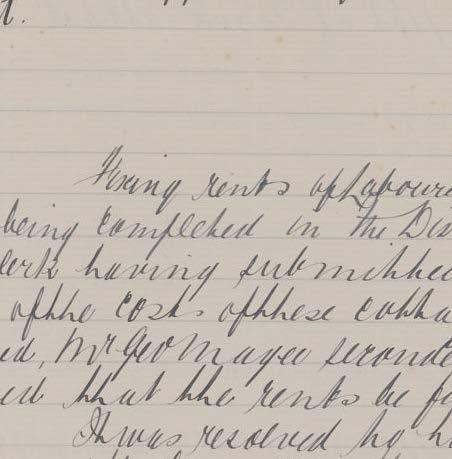 t.
Fixing rents of Laboure
being completed in the Dis
lerk having submitted
of the costs of these cotta
ed, Mr Geo Magee seconde
ed that the rents be fi
It was resolved by